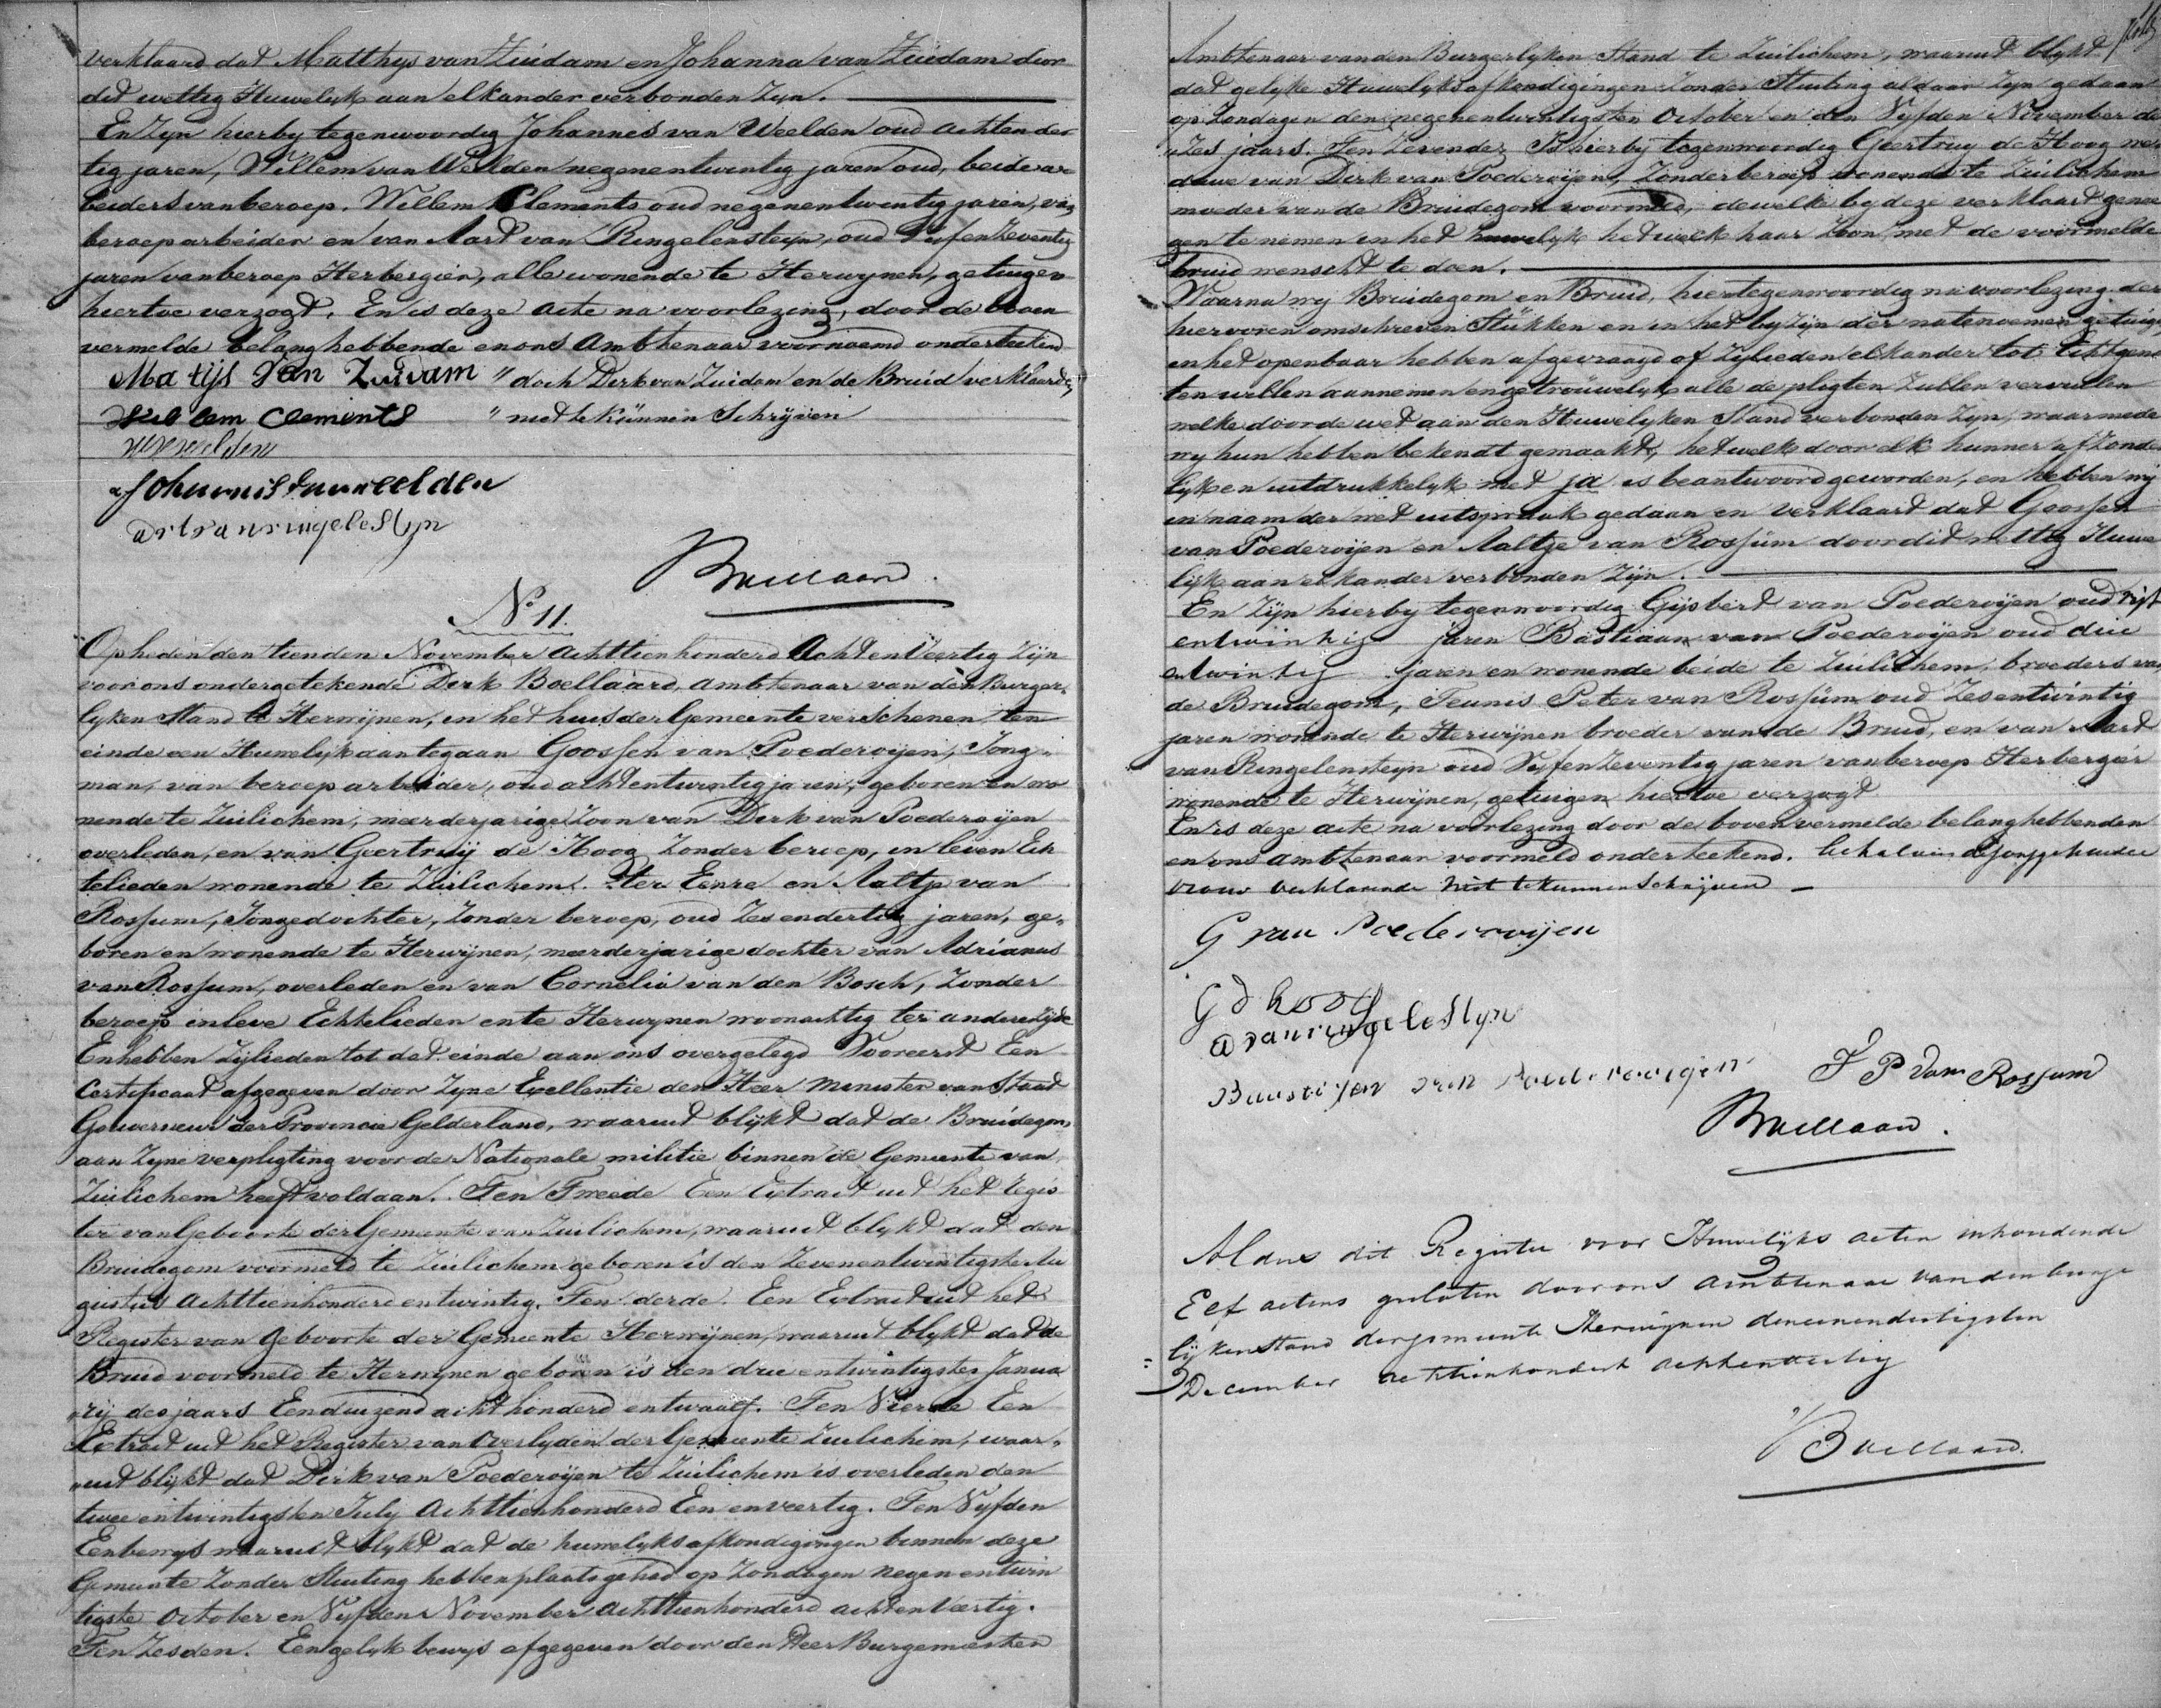 verklaard dat Matthys van Zuidam en Johanna van Zuidam door
dit wettig Huwelijk aan elkander verbonden Zyn.
En Zyn hierby tegenwoordig Johannes van Weelden oud achtender
tig jaren, Willem van Weelden negenentwintig jaren oud, beide ar
beiders van beroep. Willem Clements oud negenentwintig jaren, van
beroep arbeider en van Aart van Ringelensteyn, oud Vyfenzeventig
jaren van beroep Herbergier, alle wonende te Herwynen, getuigen
hiertoe verzogt. En is deze acte na voorlezing, door de boven
vermelde belanghebbende en ons Ambtenaar voornoemd onderteekend
Matijs van Zuidam " doch Derk van Zuidam en de Bruid verklaarde
Willem Clements " niet te kunnen Schryven
W v weelden
Johannis van weelden
art van ringelestyn
Boellaard.
No 11.
Op heden den tienden November achttienhonderd Acht en Veertig Zijn
voor ons ondergetekende Derk Boellaard, ambtenaar van den Burger
lyken Stand te Herwijnen, in het huis der Gemeente verschenen ten
einde een Huwelijk aantegaan Goossen van Poederoijen, Jong-
man, van beroep arbeider, oud achtentwintig jaren, geboren en wo
nende te Zuilichem, meerderjarige Zoon van Derk van Poederoijen
overleden, en van Geertruij de Hoog Zonder beroep, in leven Ech
telieden wonende te Zuilichem. ter Eenre en Aaltje van
Rossum, Jongedochter, Zonder beroep, oud Zesendertig jaren, ge-
boren en wonende te Herwijnen, meerderjarige dochter van Adrianus
van Rossum, overleden en van Cornelia van den Bosch, Zonder
beroep in leve Echtelieden en te Herwynen woonachtig ter andere zijde
En hebben Zijlieden tot dat einde aan ons overgelegd Vooreerst Een
Certificaat afgegeven door Zyne Excellentie den Heer Minister van Staat
Gouverneur der Provincie Gelderland, waaruit blijkt dat de Bruidegom
aan Zyne verpligting voor de Nationale militie binnen de Gemeente van
Zuilichem heeft voldaan. Ten Tweede Een Extract uit het Regis
ter van Geboorte der Gemeente van Zuilichem, waaruit blykt dat den
Bruidegom voormeld te Zuilichem geboren is den Zevenentwintigste Au
gustus achttienhonderd en twintig. Ten derde. Een Extract uit het
Register van Geboorte der Gemeente Herwijnen, waaruit blykt dat de
Bruid voormeld te Herwynen geboren is den drie entwintigsten Janua
rij des jaars Eenduizend acht honderd en twaalf. Ten Vierde Een
Extract uit het Register van Overlyden der Gemeente Zuilichem, waar-
uit blijkt dat Dirk van Poederoijen te Zuilichem is overleden den
twee entwintigsten July Achttienhonderd Een en veertig. Ten Vyfden
Een bewys waaruit blykt dat de huwelyksafkondigingen binnen deze
Gemeente Zonder Stuiting hebben plaats gehad op Zondagen negen entwin
tigste October en Vyfden November achttienhonderd acht en Veertig.
Ten Zesden. Een gelyk bewys afgegeven door den Heer Burgemeester
Ambtenaar van den Burgerlyken Stand te Zuilichem, waaruit blykt
dat gelyke Huwelyksafkondigingen Zonder Stuiting aldaar Zyn gedaan
op Zondagen den negenentwintigsten October en den Vyfden November de
zes jaars. Ten Zevende, Is hierby tegenwoordig Geertruy de Hoog we
duwe van Derk van Poederoijen, Zonder beroep wonende te Zuilichem
moeder van de Bruidegom voormeld, dewelke by deze verklaart genoe
gen te nemen in het huwelyk hetwelk haar Zoon met de voormelde
bruid wenscht te doen.
Waarna wij Bruidegom en Bruid, hier tegenwoordig na voorlezing der
hiervoren omschreven Stukken en in het byzijn der natenoemen getuigen
in het openbaar hebben afgevraagd of Zylieden elkander tot Echtgeno
ten willen aannemen en getrouwelyk alle de pligten Zullen vervullen
welke door de wet aan den Huwelyken Stand verbonden Zyn, waarmede
wy hun hebben bekendt gemaakt, hetwelk door elk hunner afzonder
lyk en uitdrukkelyk met ja is beantwoord geworden, en hebben wij
in naam der wet uitspraak gedaan en verklaart dat Goossen
van Poederoijen en Aaltje van Rossum door dit wettig Huwe
lijk aan elkander verbonden Zijn.
En Zijn hierby tegenwoordig Gijsbert van Poederoijen oud vijf
entwintig jaren Bastiaan van Poederoijen oud drie
entwintig jaren en wonende beide te Zuilichem, broeders van
de Bruidegom, Teunis Peter van Rossum oud Zesentwintig
jaren wonende te Herwijnen broeder van de Bruid, en van Aart
van Ringelensteyn oud Vyfenzeventig jaren van beroep Herbergier
wonende te Herwijnen, getuigen hiertoe verzogt
En is deze acte na voorlezing door de bovenvermelde belanghebbenden
en ons ambtenaar voormeld onderteekend. de jonggehuwde
vrouw verklarende niet te kunnen Schrijven
G van Poederooijen
G d hoog
a van ringelestyn
Baustijan van Poederooijen
T P van Rossum
Boellaard.
Aldus dit Register voor Huwelijks acten inhoudende
Elf actens gesloten door ons ambtenaar van den burger
lijken Stand der gemeente Herwijnen den eenendertigsten
December achttienhonderd achtenveertig
Boellaard.